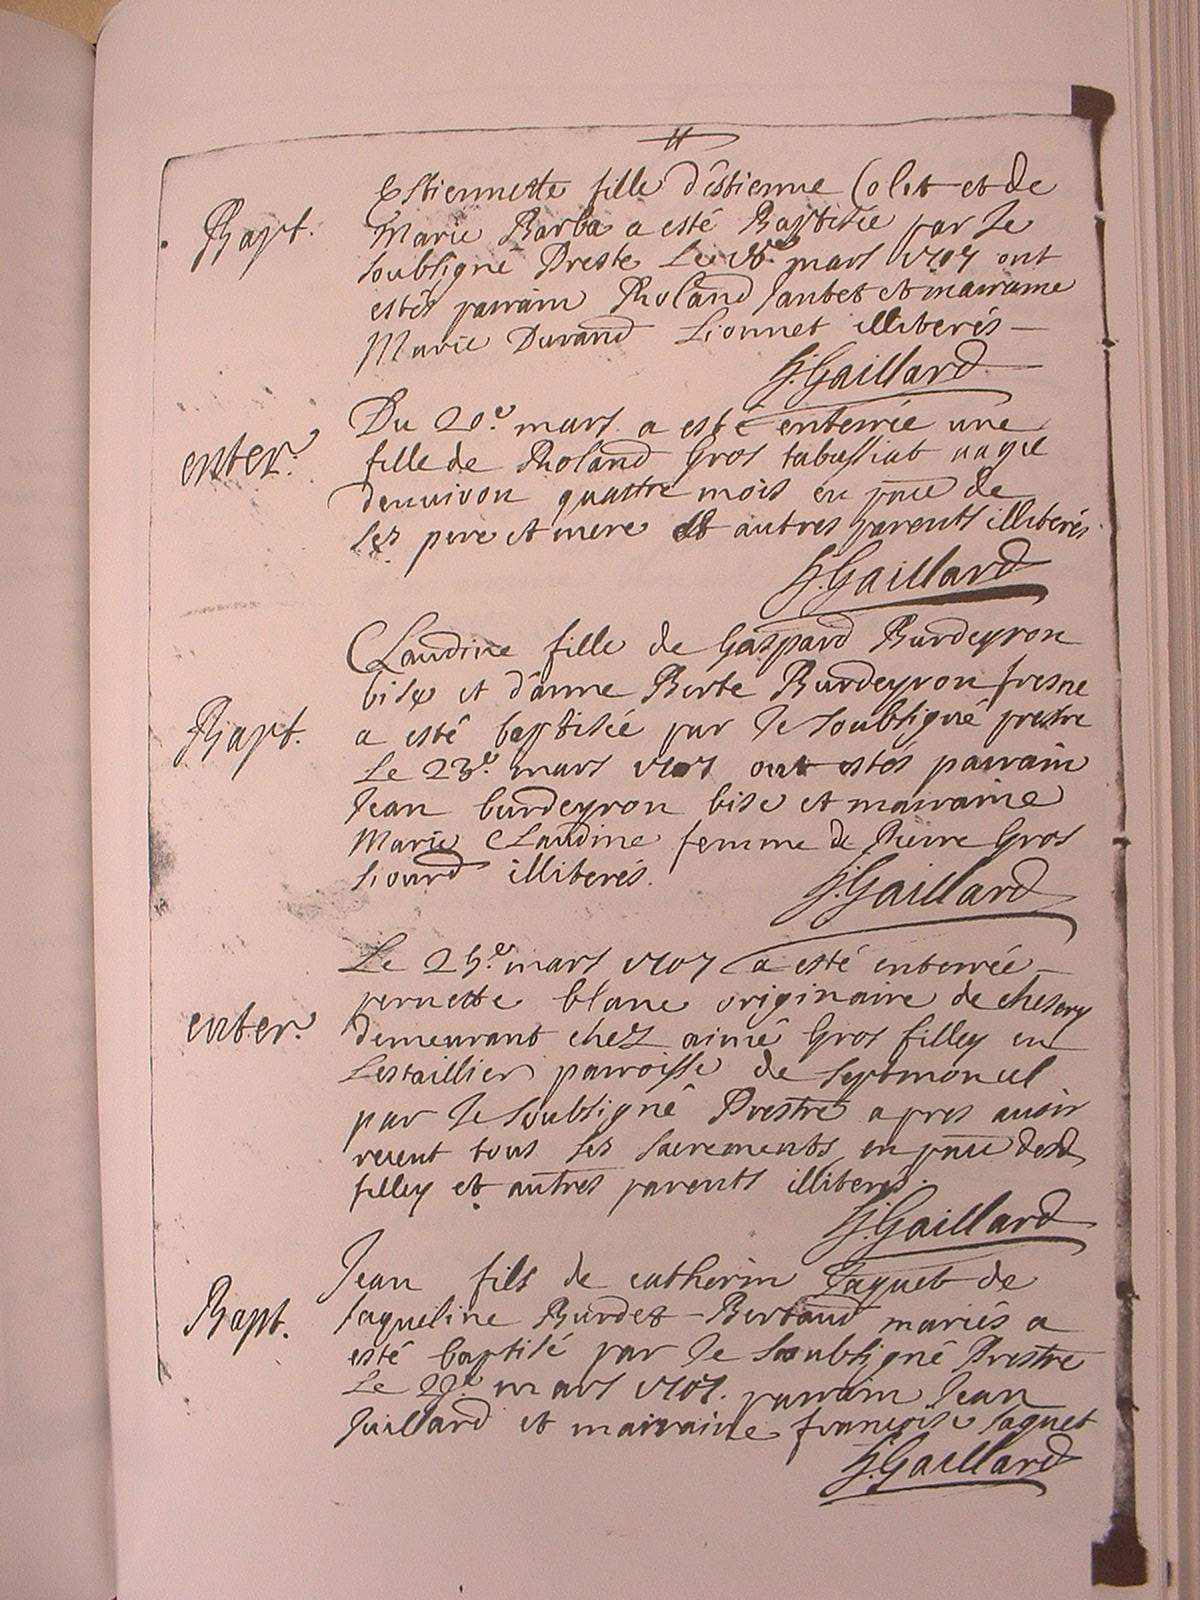 Bapt.
Estiennette fille d'Estienne Colet et de
Marie Barba a esté Baptisée par Je
soubsigné Preste Le mars 1707 ont
estés parrain Roland Jantet et marraine
Marie Durand Lionnet illiterés
G. Gaillard
enter.
Du 20e. mars a esté enterrée une
fille de Roland Gros tabussiat aagée
denuiron quattre mois en pnce de
ses pere et mere et autres parents illiterés
G. Gaillard
Bapt.
Claudine fille de Gaspard Burdeyron
bise et d'anne Berte Burdeyron fresne
a esté baptisée par Je soubsigné prestre
Le 23e. mars 1707 ont estés parrain
Jean burdeyron bise et marraine
Marie Claudine femme de Pierre Gros
illiterés.
G. Gaillard
enter.
Le 25e. mars 1707 a esté enterrée
pernette blanc originaire de chesery
demeurant chez aimé Gros filley en
Lestaillier parroisse de septmoncel
par Je soubsigné Prestre apres auoir
receut tous ses sacrements en pnce dud
filley et autres parents illiterés.
G. Gaillard
Bapt.
Jean fils de catherin Jaquet de
Jaqueline Burdet-Bertaud mariés a
esté baptisé par Je soubsigné Prestre
Le 29e. mars 1707. parrain Jean
Juillard et marraine francoise Jaquet
G. Gaillard